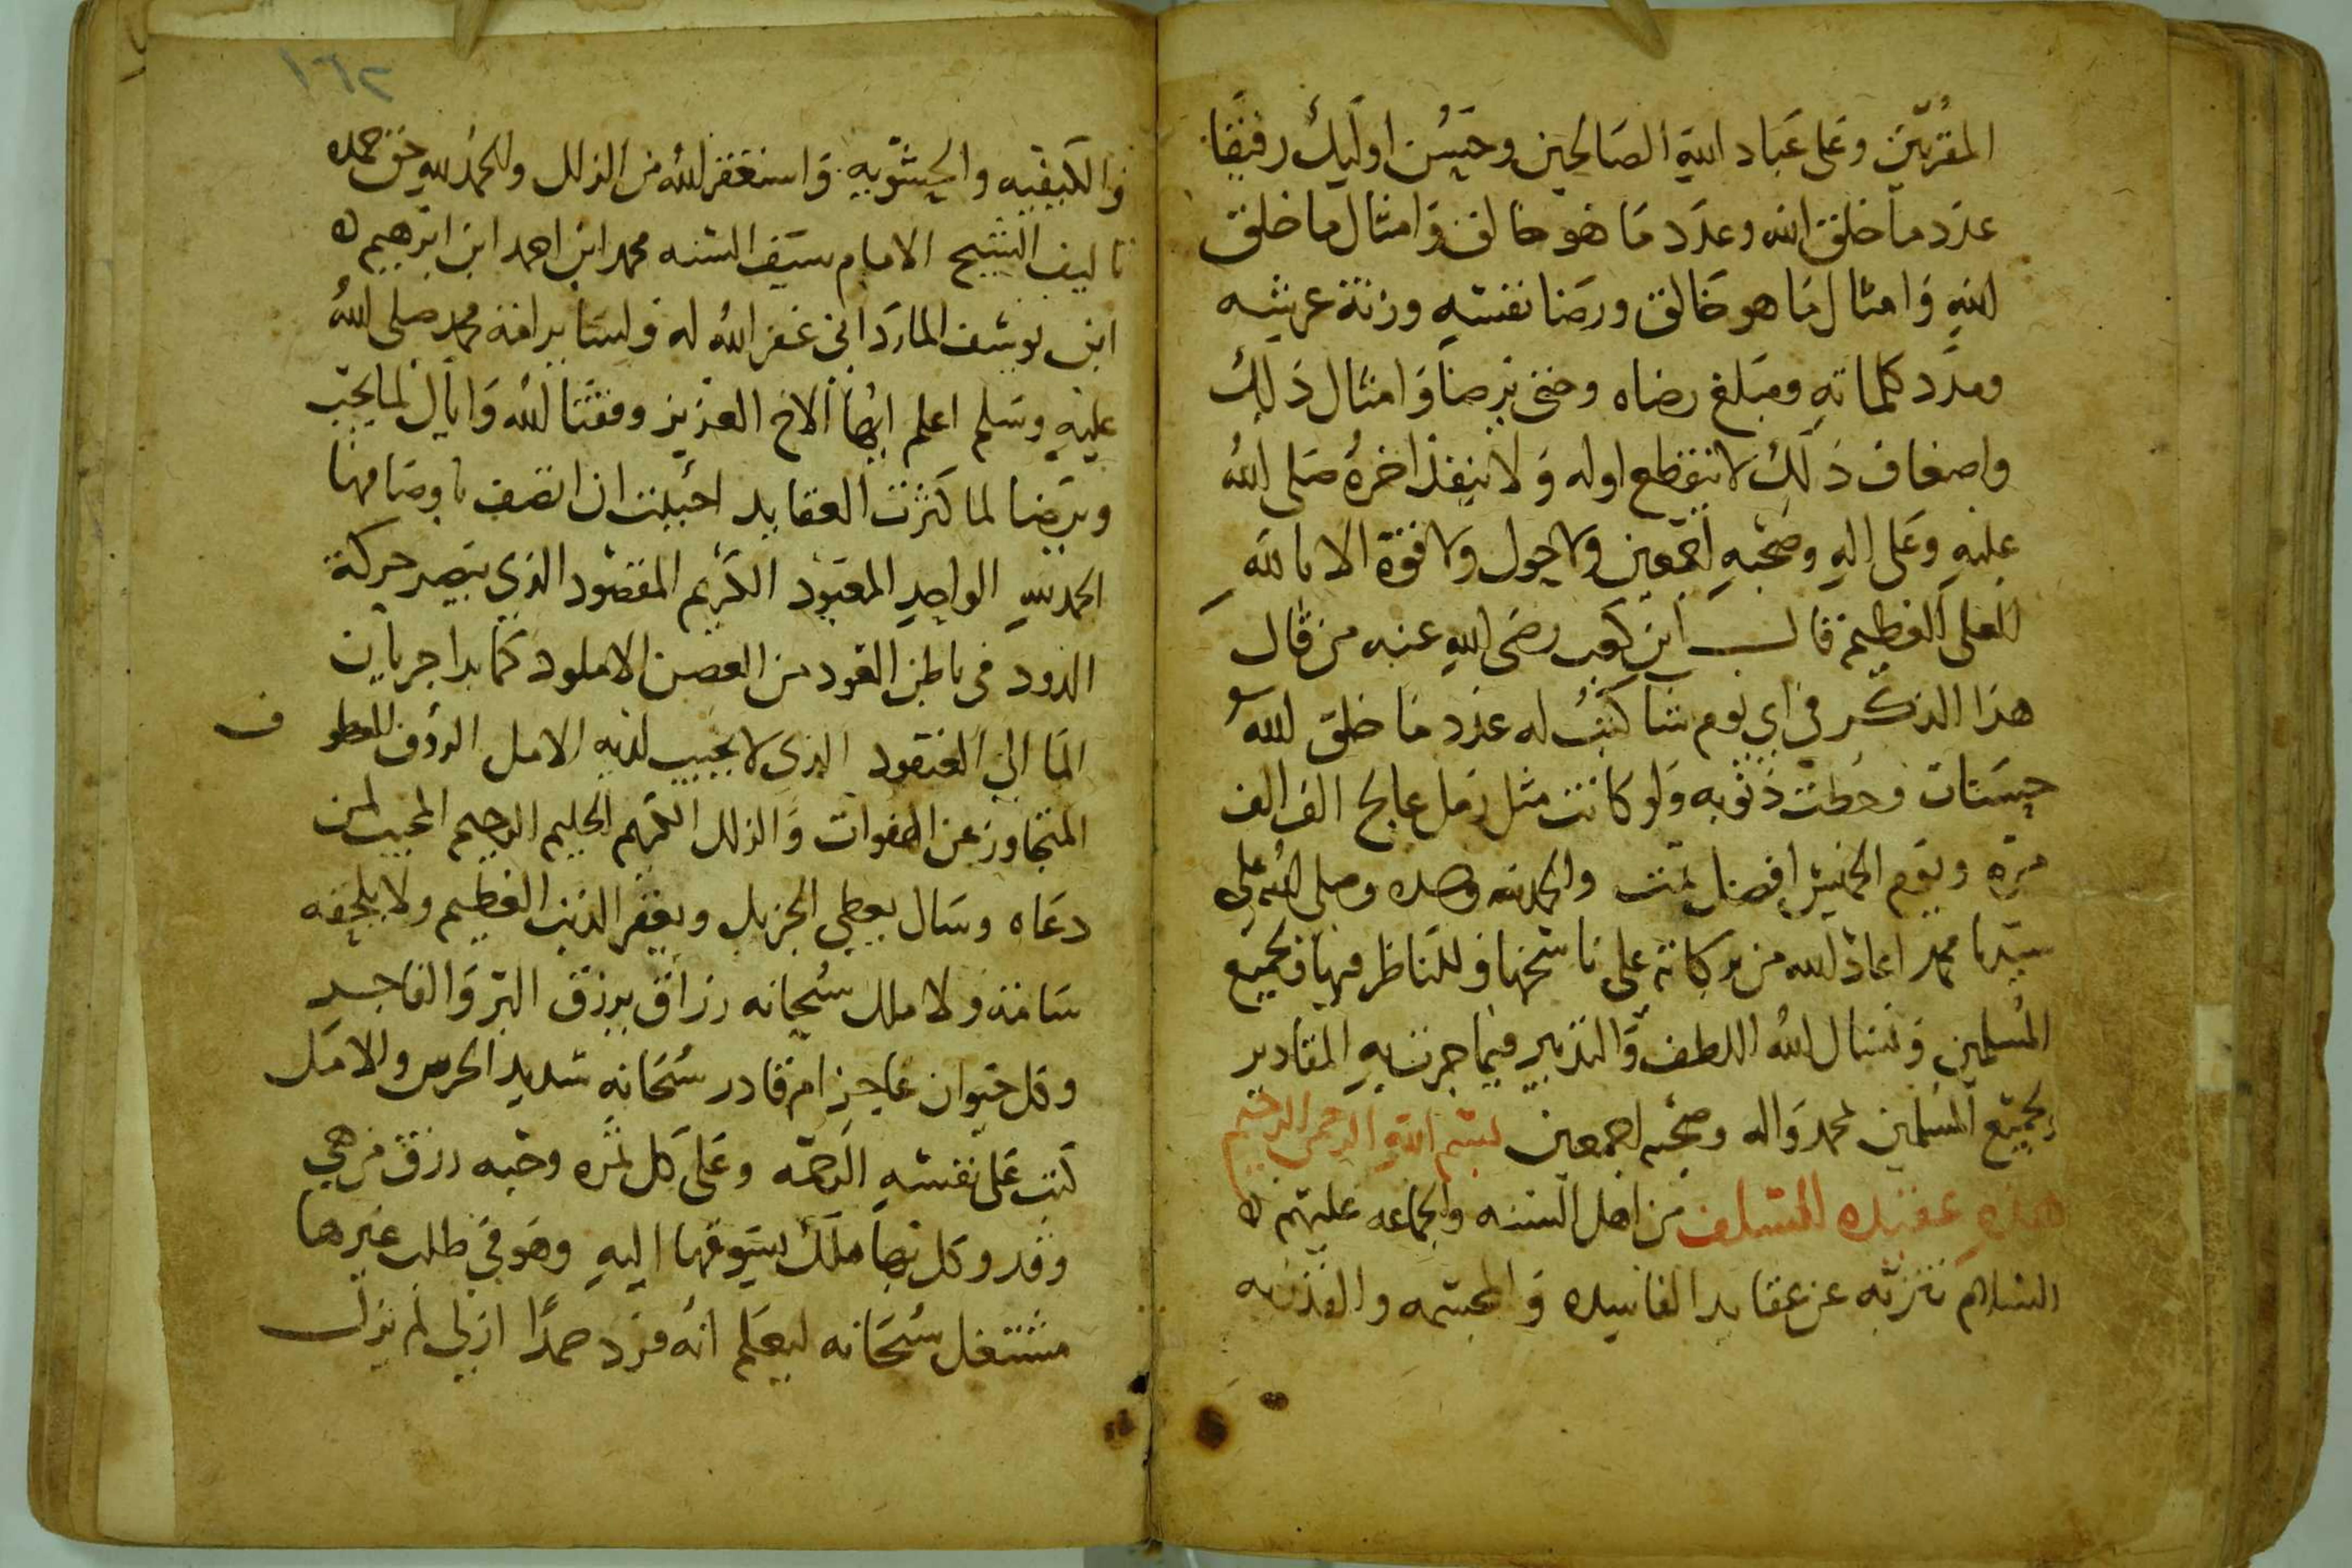 المقربين وعلى عباد الله الصالحين وحسن اوليك رفيقا
عدد ما خلق الله وعدد ما هو خالق وامثال ما خلق
الله وامثال ما هو خالق ورضا نفسه وزنة عرشه
ومدد كلماته ومبلغ رضاه وحتى يرضا وامثال ذلك
واضعاف ذلك لا ينقطع اوله ولا ينفذ اخره صلى الله
عليه وعلى اله وصحبه اجمعين ولا حول ولا قوة الا بالله
العلي العظيم قال ابن كعب رضي الله عنه من قال
هذا الذكر في اي يوم شا كتب له عدد ما خلق الله
حسنات وحطت ذنوبه ولو كانت مثل رمل عالج الف الف
مره ويوم الخميس افضل تمت والحمد لله وحده وصلى الله على
سيدنا محمد اعاد الله من بركاته على ناسخها وللناظر فيها ولجميع
المسلمين ونسال الله اللطف والتدبير فيما جرت به المقادير
لجميع المسلمين لمحمد واله وصحبه اجمعين بسم الله الرحمن الرحيم
هذه عقيده السلف من اهل السنه والجماعه عليهم
السلام تنزيه عن عقايد الفاسده والمجسمه والقدريه
١٣٦
والكيفيه والحشويه واستغفر الله من الزلل والحمد لله حق حمده
تاليف الشيخ الامام سيف السنه محمد ابن احمد ابن ابرهيم
ابن يوسف المارداني غفر الله له ولسا برافة محمد صلى الله
عليه وسلم اعلم ايها الاخ العزيز وفقنا الله واياك لما يحب
ويرضا لما كثرت العقايد احببت ان اتصف باوصافها
الحمد لله الواحد المعبود الكريم المقصود الذي يبصر حركة
الدود في باطن العود من الغصن الاملود كما بدا جريان
الما الى العنقود الذي لا يخيب لديه الامل الروف العطو
ف
المتجاوز عن الهفوات والزلل الكريم الحليم الرحيم المجيب لمن
دعاه وسال يعطي الجزيل ويغفر الذنب العظيم ولا يلحقه
سامة ولا ملل سبحانه رزاق يرزق البر والفاجر
وكل حيوان عاجز ام قادر سبحانه شديد الحرص والامل
كتب على نفسه الرحمه وعلى كل ثمره وحبه رزق من هي
وقد وكل بها ملك يسوقها اليه وهو في طلب غيرها
مشتغل سبحانه ليعلم انه فرد صمدا ازلي لم يزل